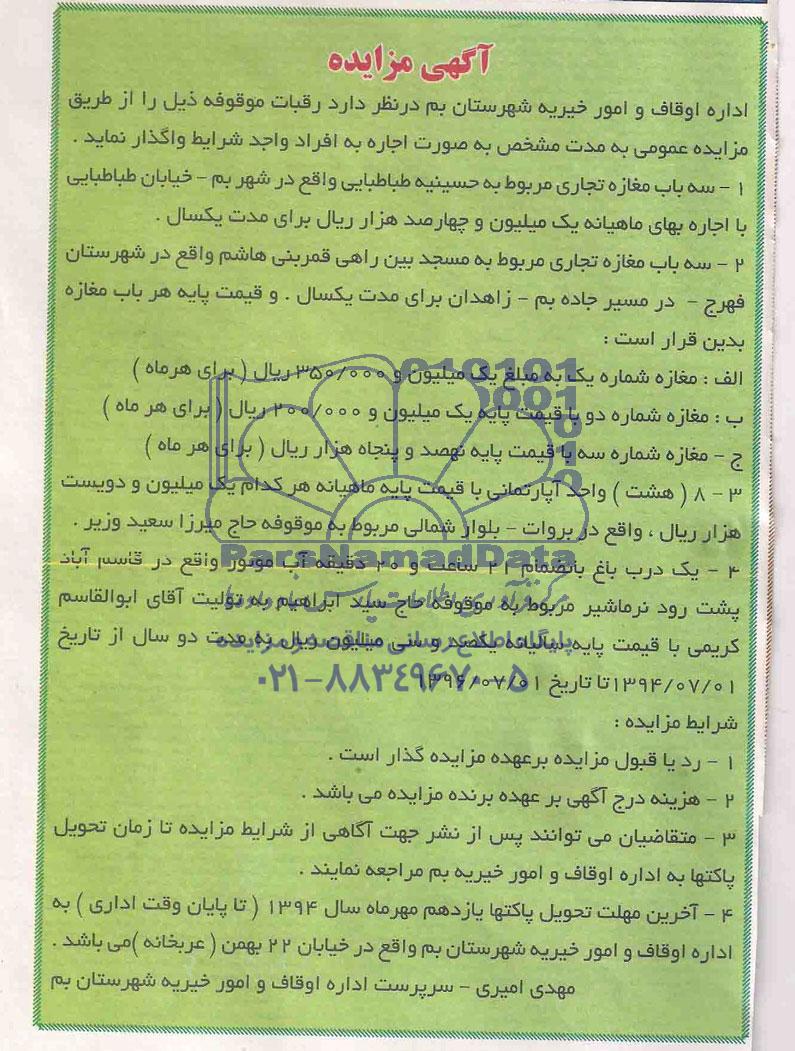 آگهی مزایده
اداره اوقاف و امور خیریه شهرستان بم درنظر دارد رقبات موقوفه ذیل را از طریق
مزایده عمومی به مدت مشخص به صورت اجاره به افراد واجد شرایط واگذار نماید .
۱ - سه باب مغازه تجاری مربوط به حسینیه طباطبایی واقع در شهر بم - خیابان طباطبایی
با اجاره بهای ماهیانه یک میلیون و چهارصد هزار ریال برای مدت یکسال .
۲ - سه باب مغازه تجاری مربوط به مسجد بین راهی قمربنی هاشم واقع در شهرستان
فهرج - در مسیر جاده بم - زاهدان برای مدت یکسال . و قیمت پایه هر باب مغازه
بدین قرار است :
الف : مغازه شماره یک به مبلغ یک میلیون و ۳۵۰/۰۰۰ ریال ( برای هرماه )
ب : مغازه شماره دو با قیمت پایه یک میلیون و ۲۰۰/۰۰۰ ریال ( برای هر ماه )
ج - مغازه شماره سه با قیمت پایه نهصد و پنجاه هزار ریال ( برای هر ماه )
۳ - ۸ ( هشت ) واحد آپارتمانی با قیمت پایه ماهیانه هر کدام یک میلیون و دویست
هزار ریال ، واقع در بروات - بلوار شمالی مربوط به موقوفه حاج میرزا سعید وزیر .
ParsNamadData
۴ - یک درب باغ بانضمام ۲۱ ساعت و ۲۰ دقیقه آب موتور واقع در قاسم آباد
پشت رود نرماشیر مربوط به موقوفه حاج سید ابراهیم به تولیت آقای ابوالقاسم
کریمی با قیمت پایه سالیانه یکصد و سی میلیون ریال به مدت دو سال از تاریخ
۱۳۹۴/۰۷/۰۱ تا تاریخ ۱۳۹۶/۰۷/۰۱
۰۲۱-۸۸۳۴۹۶۷۰-۵
شرایط مزایده :
۱ - رد یا قبول مزایده برعهده مزایده گذار است .
۲ - هزینه درج آگهی بر عهده برنده مزایده می باشد .
۳ - متقاضیان می توانند پس از نشر جهت آگاهی از شرایط مزایده تا زمان تحویل
پاکتها به اداره اوقاف و امور خیریه بم مراجعه نمایند .
۴ - آخرین مهلت تحویل پاکتها یازدهم مهرماه سال ۱۳۹۴ ( تا پایان وقت اداری ) به
اداره اوقاف و امور خیریه شهرستان بم واقع در خیابان ۲۲ بهمن ( عربخانه )می باشد .
مهدی امیری - سرپرست اداره اوقاف و امور خیریه شهرستان بم